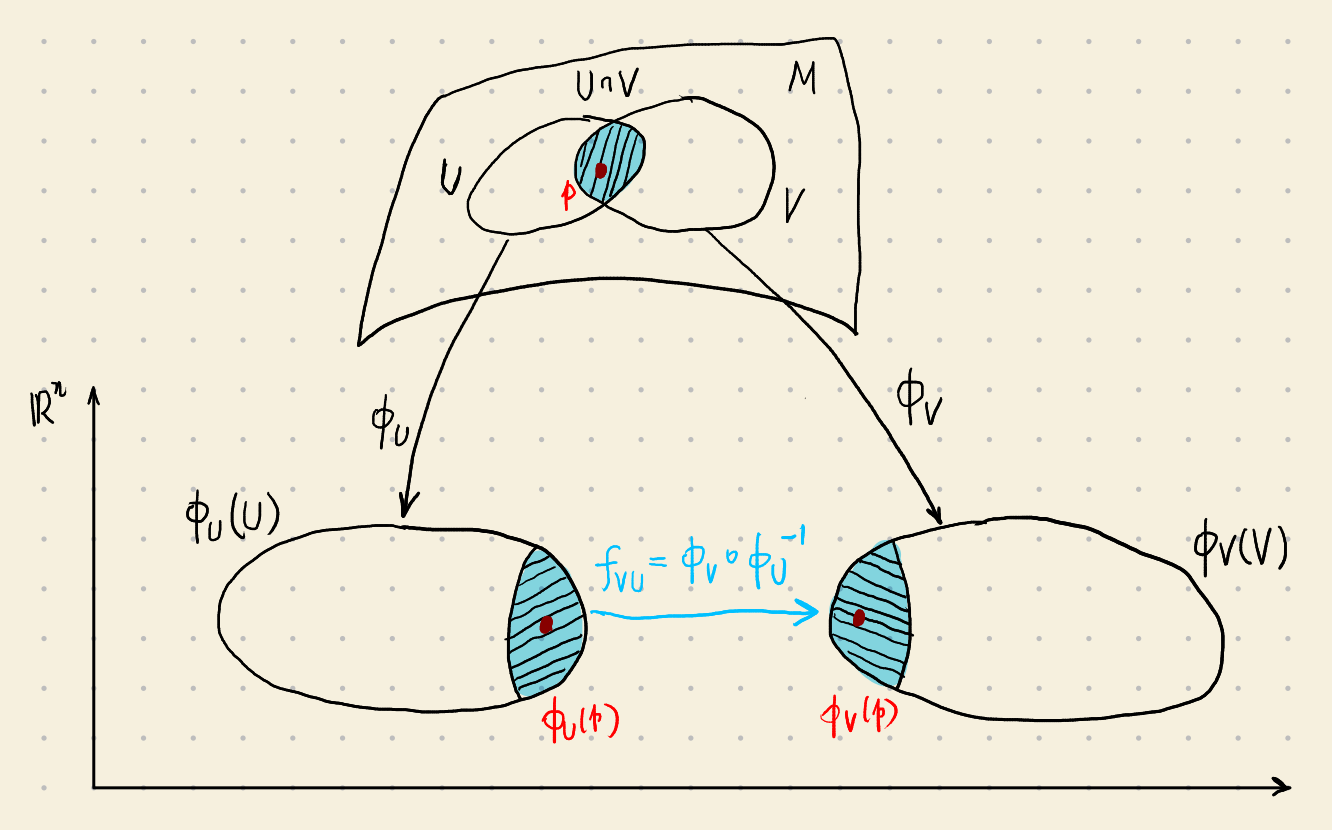 U∩V
M
U
p
V
ℝⁿ
ϕ_U
ϕ_V
ϕ_U(U)
f_{VU} = ϕ_V ∘ ϕ_U^{-1}
ϕ_V(V)
ϕ_U(p)
ϕ_V(p)